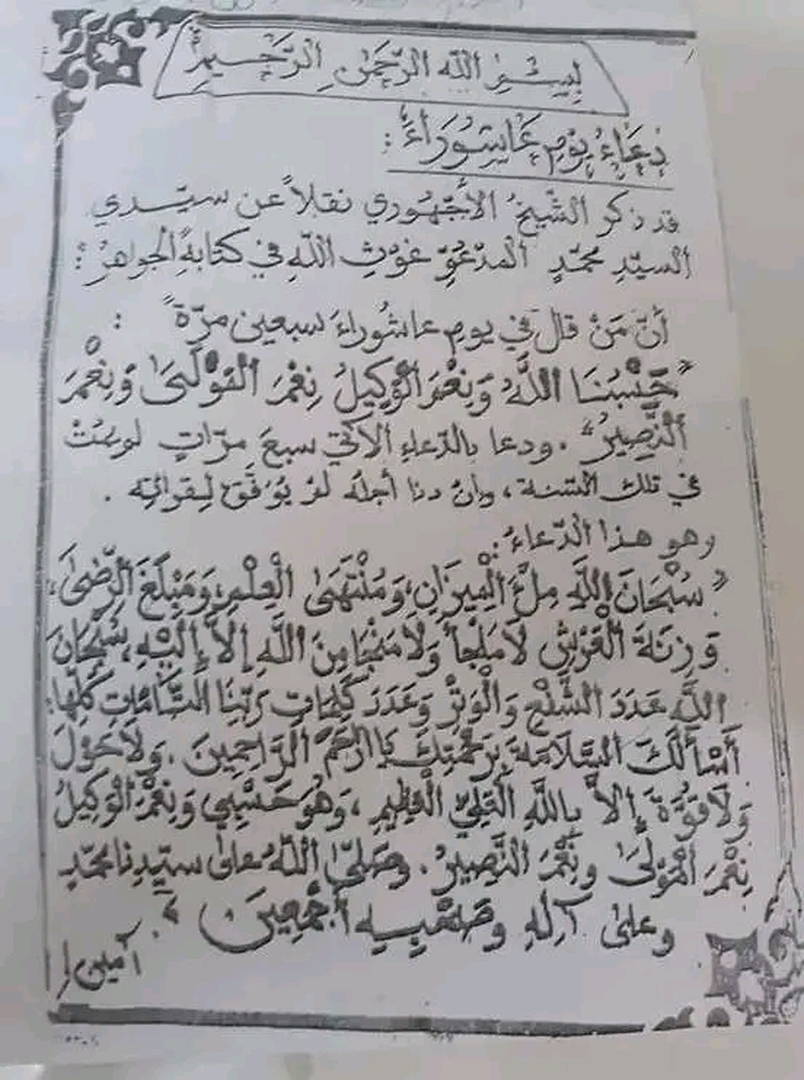 بِسْمِ اللَّهِ الرَّحْمٰنِ الرَّحِيمِ
دُعَاءُ يَوْمِ عَاشُورَاءَ:
قد ذكر الشّيخُ الأُجْهُوري نقلاً عن سيّدي
السيّدِ محمّدٍ المدعوِّ غوثِ اللّهِ في كتابهِ الجواهرُ:
أنّ مَنْ قال في يومِ عاشوراءَ سبعين مرّةً:
« حَسْبُنَا اللَّهُ وَنِعْمَ الْوَكِيلُ نِعْمَ الْمَوْلَىٰ وَنِعْمَ
النَّصِيرُ ». ودعا بالدّعاءِ الآتي سبعَ مرّاتٍ لم يمُتْ
في تلك السّنة، وإنْ دنا أجله لم يُوَفَّقْ لِقرائتِه.
وهو هذا الدّعاءُ:
« سُبْحَانَ اللَّهِ مِلْءَ الْمِيزَانِ، وَمُنْتَهَىٰ الْعِلْمِ، وَمَبْلَغَ الرِّضَىٰ،
وَزِنَةَ الْعَرْشِ لَا مَلْجَأَ وَلَا مَنْجَا مِنَ اللَّهِ إِلاَّ إِلَيْهِ، سُبْحَانَ
اللَّهِ عَدَدَ الشَّفْعِ وَالْوَتْرِ وَعَدَدَ كَلِمَاتِ رَبِّنَا التَّامَّاتِ كُلِّهَا،
أَسْأَلُكَ السَّلَامَةَ بِرَحْمَتِكَ يَا أَرْحَمَ الرَّاحِمِينَ. وَلَا حَوْلَ
وَلَا قُوَّةَ إِلاَّ بِاللَّهِ الْعَلِيِّ الْعَظِيمِ، وَهُوَ حَسْبِي وَنِعْمَ الْوَكِيلُ
نِعْمَ الْمَوْلَىٰ وَنِعْمَ النَّصِيرُ. وَصَلَّىٰ اللَّهُ عَلَىٰ سَيِّدِنَا مُحَمَّدٍ
وَعَلَىٰ آلِهِ وَصَحْبِهِ أَجْمَعِينَ ».
آمين!